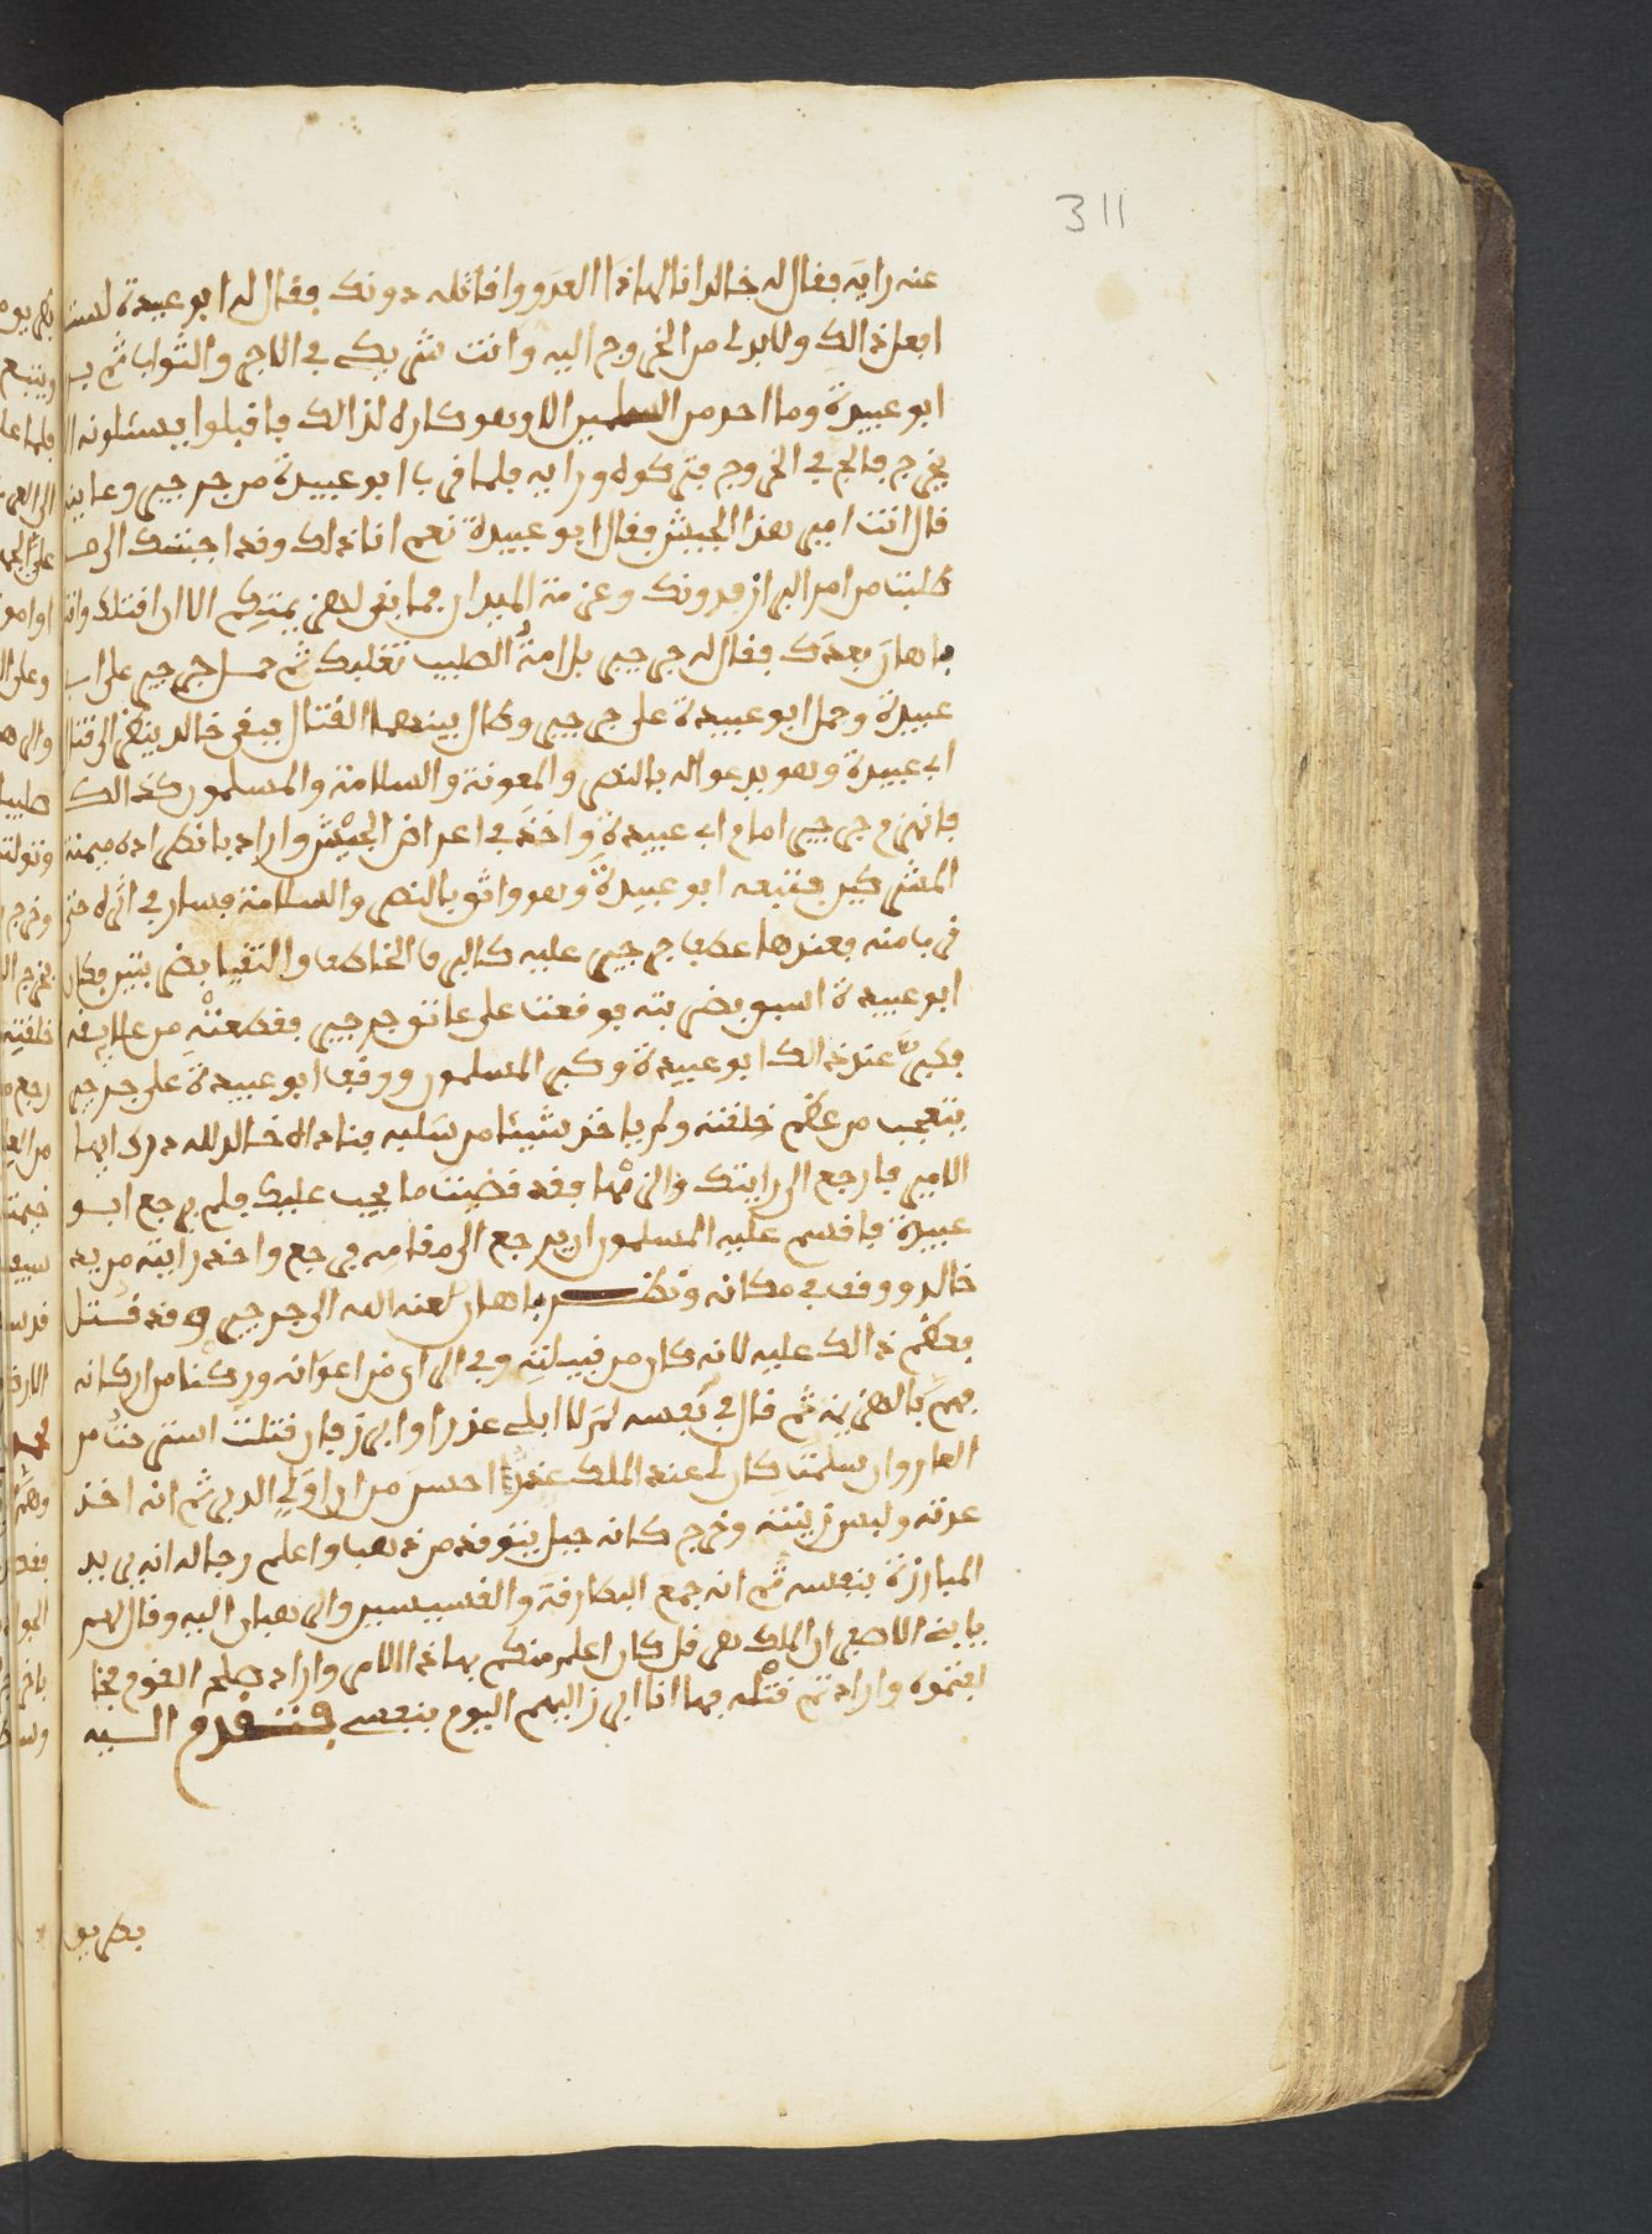 311
عنه راية فقال له خالد انا لهاذا العدو واقاتله دونك فقال له ابو عبيدة لست
افعل ذالك ولا بد لي من الخروج اليه وانت شريك في الاجر والثواب ثم
ابو عبيدة وما احد من المسلمين الا وهو كاره لذالك فاقبلوا يسئلونه
يخرج فالج في الخروج فتركوه ورايه فلما قرب ابو عبيدة من جرجير وعاينه
قال انت امير هذا الجيش فقال ابو عبيدة نعم انا ذلك وقد اجبتك الى
طلبت من امر البراز فدونك وعزمة الميدان فما بقي لهزيمتكم الا ان اقتلك
باهان بعدك فقال له جرجير بل امة الصليب تغلبك ثم حمل جرجير على ابي
عبيدة وحمل ابو عبيدة على جرجير وطال بينهما القتال فبقي خالد ينظر الى قتال
ابي عبيدة وهو يدعو له بالنصر والمعونة والسلامة والمسلمون كذالك
فانهزم جرجير امام ابي عبيدة واخذ في اعراض الجيش واراد بانطراده ميمنة
المشركين فتبعه ابو عبيدة وهو واثق بالنصر والسلامة فسار في اثره حتى
قربا منه فعندها عطف جرجير عليه كالبرق الخاطف والتقيا بضربتين فكان
ابو عبيدة اسبق بضربته فوقعت على عاتق جرجير فقطعته من علايقه
فكبر عند ذالك ابو عبيدة وكبر المسلمون ووقف ابو عبيدة على جرجير
يتعجب من عظم خلقته ولم ياخذ شيئا من سلبه فناداه خالد لله درك ايها
الامير فارجع الى رايتك والزمها فقد قضيت ما يجب عليك فلم يرجع ابو
عبيدة فاقسم عليه المسلمون ان يرجع الى مقامه فرجع واخذ رايته من يد
خالد ووقف في مكانه ونظر باهان لعنه الله الى جرجير وقد قتل
فعظم ذالك عليه لانه كان من قبيلته وفي الراي من اعوانه وركنا من اركانه
فهم بالهزيمة ثم قال في نفسه لم لا ابلي عذرا وابرز فان قتلت استرحت من
العار وان سلمت كان لي عند الملك عذرا احسن من ان اولي الدبر ثم انه اخذ
عدته ولبس زينته وخرج كانه جبل يتوقد من ذهب واعلم رجاله انه يريد
المبارزة بنفسه ثم انه جمع البطارقة والقسيسين والرهبان اليه وقال لهم
يا بنه الاصفر ان الملك هرقل كان اعلم منكم بهاذا الامر واراد صلح القوم
واراد تم قتله فها انا ابرز اليهم اليوم بنفسي فتقدم اليه
بطريق